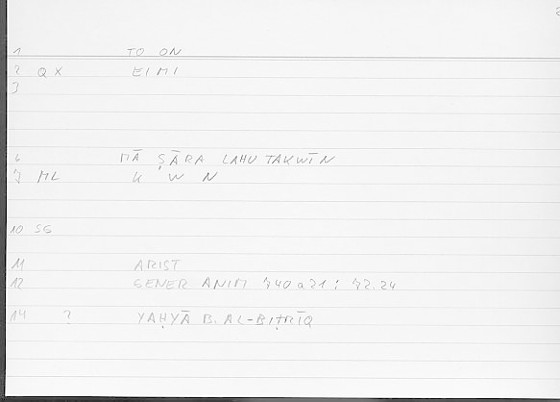 1 TO ON
2 QX EIMI
3
6 MĀ ṢĀRA LAHU TAKWĪN
7 ML K W N
10 SG
11 ARIST
12 GENER ANIM 740a21 ; 72.24
14 ? YAḤYĀ B. AL-BIṬRĪQ